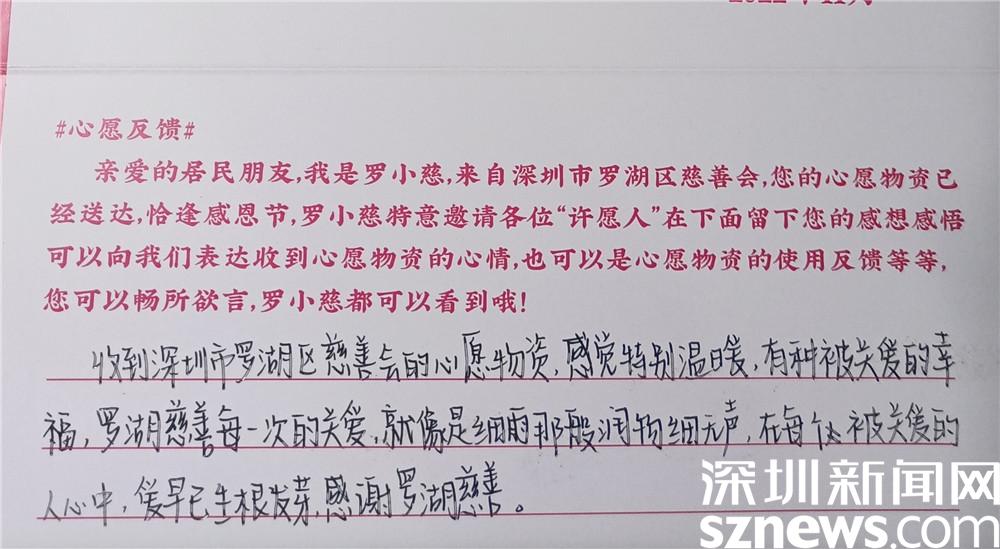 2022年11月
#心愿反馈#
亲爱的居民朋友,我是罗小慈,来自深圳市罗湖区慈善会,您的心愿物资已
经送达,恰逢感恩节,罗小慈特意邀请各位“许愿人”在下面留下您的感想感悟
可以向我们表达收到心愿物资的心情,也可以是心愿物资的使用反馈等等,
您可以畅所欲言,罗小慈都可以看到哦!
收到深圳市罗湖区慈善会的心愿物资,感觉特别温暖,有种被关爱的幸
福,罗湖慈善每一次的关爱,就像是细雨那般润物细无声,在每个被关爱的
人心中,爱早已生根发芽,感谢罗湖慈善。
深圳新闻网
sznews.com